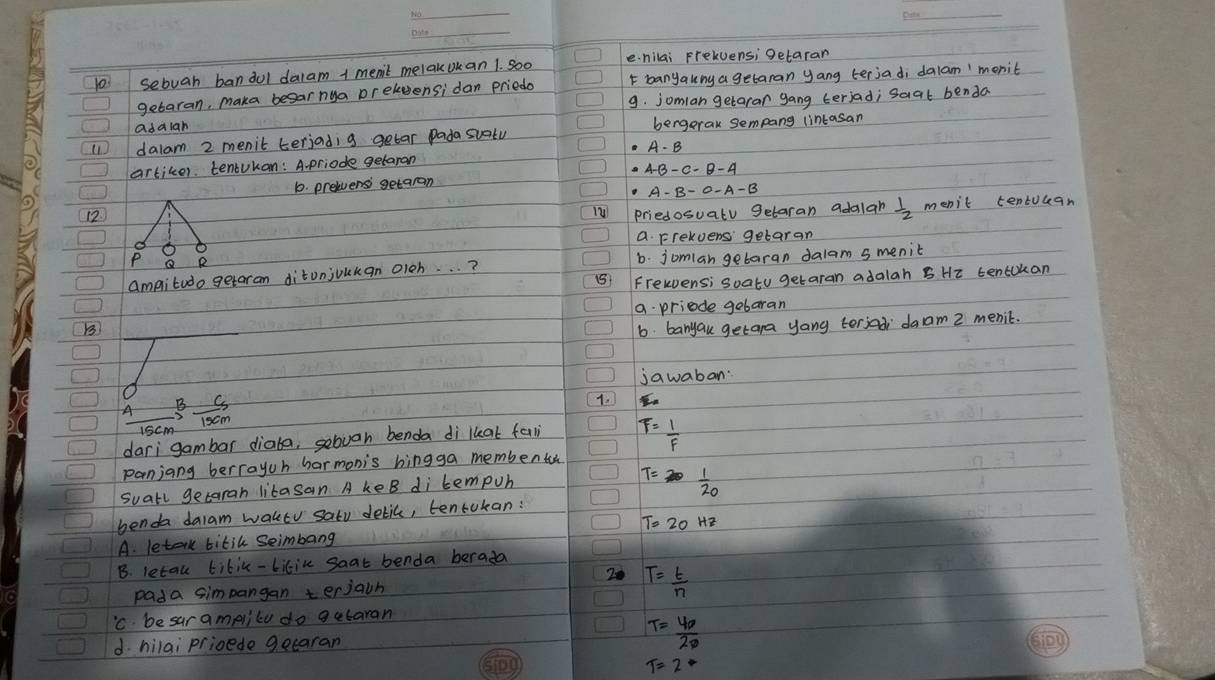 No.
Date
10 Sebuah bandul dalam 1 menit melakukan 1.800
getaran, maka besarnya prekuensi dan priedo
adalah
11 dalam 2 menit terjadi 9 getar pada suatu
artikel. tentukan: A. priode getaran
b. prekuensi getaran
12.
P Q R
ampitudo getaran ditunjukkan oleh ...?
13
A B C
15cm 15cm
dari gambar diata, sebuah benda di ikat tali
panjang berrayun harmonis hingga membentuk
suatu getaran litasan A ke B di tempuh
benda dalam waktu satu detik, tentukan:
A. letak titik seimbang
B. letak titik-titik saat benda berada
pada simpangan terjauh
c. besar ampitudo getaran
d. nilai prioedo getaran
SIDU
Date
e. nilai Frekuensi getaran
F banyaknya getaran yang terjadi dalam 1 menit
g. jumlah getaran yang terjadi saat benda
bergerak sempang lintasan
• A-B
• A-B-C-B-A
• A-B-C-A-B
14 Priedosuatu getaran adalah 1/2 menit tentukan
a. Frekuensi getaran
b. jumlah getaran dalam 5 menit
15 Frekuensi suatu getaran adalah 5 Hz tentukan
a. priode getaran
b. banyak getara yang terjadi dalam 2 menit.
jawaban:
1.
F = 1/F
T = 1/20
T = 20 Hz
2 T = t/n
T = 40/20
T = 2
SIDU